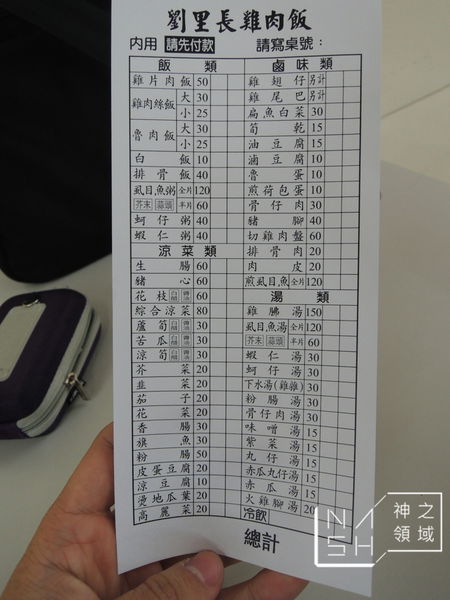 劉里長雞肉飯
內用 請先付款 請寫桌號：
飯類
雞片肉飯 50
雞肉絲飯 大 30
小 25
魯肉飯 大 30
小 25
白飯 10
排骨飯 40
虱目魚粥 全片 120
芥末 蒜頭 半片 60
蚵仔粥 40
蝦仁粥 40
涼菜類
生腸 60
豬心 60
花枝 白醋 醬油 60
綜合涼菜 80
蘆筍 白醋 醬油 30
苦瓜 白醋 醬油 30
涼筍 白醋 醬油 30
芥菜 20
韭菜 20
茄子 20
花菜 20
香腸 30
旗魚 30
粉腸 50
皮蛋豆腐 20
涼豆腐 10
燙地瓜葉 20
高麗菜 20
鹵味類
雞翅仔 另計
雞尾巴 另計
扁魚白菜 30
筍乾 15
油豆腐 15
滷豆腐 10
魯蛋 10
煎荷包蛋 10
骨仔肉 30
豬腳 40
切雞肉盤 60
排骨肉 20
肉皮 20
煎虱目魚 全片 120
湯類
雞腿湯 150
虱目魚湯 全片 120
芥末 蒜頭 半片 60
蝦仁湯 30
蚵仔湯 30
下水湯(雞雜) 30
粉腸湯 30
骨仔肉湯 30
味噌湯 15
紫菜湯 15
丸仔湯 15
赤瓜丸仔湯 15
赤瓜湯 15
火雞腳湯 20
冷飲
總計
NASH 神之領域